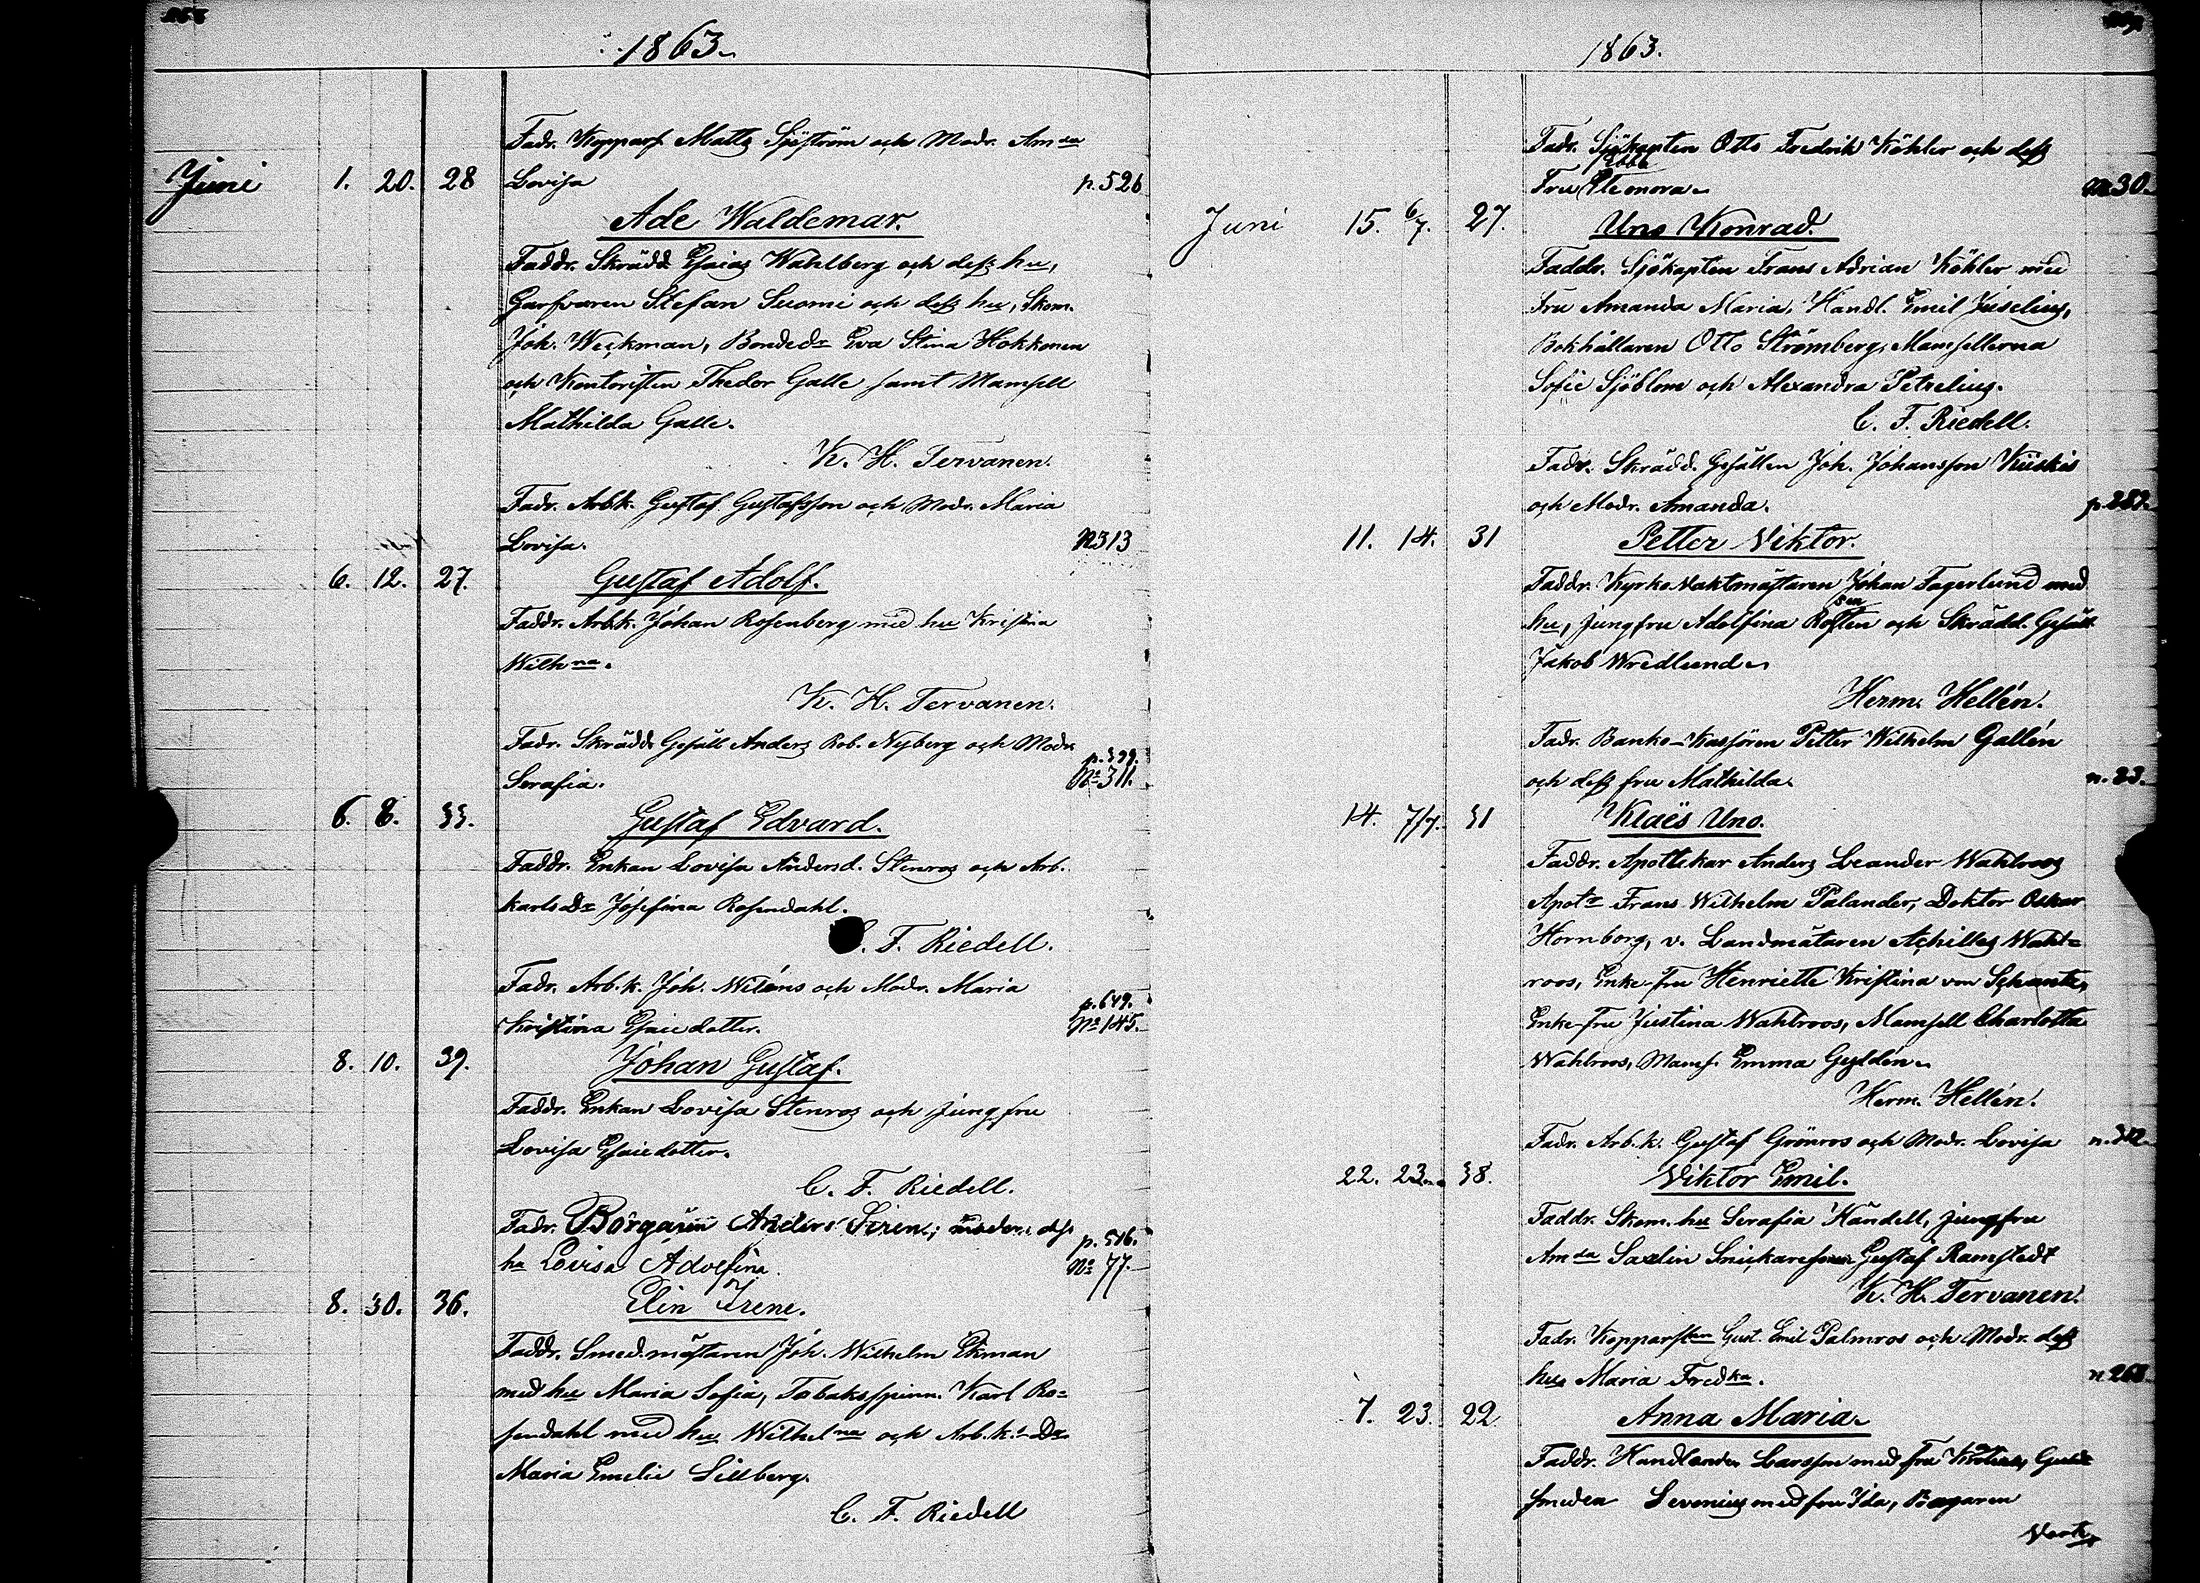 1863.
Fadr. Kopparsl. Matts Sjöström och Modr. Amda
Juni 1. 20. 28 Lovisa p. 526
Ade Waldemar.
Faddr. Skrädd. Esaias Wahlberg och dess hu,
Garfvaren Stefan Suomi och dess hu, Skom.
Joh. Weckman, Bondedr Eva Stina Hokkonen
och Kontoristen Thedor Galle samt Mamsell
Mathilda Galle.
K. H. Tervanen.
Fadr. Arbk. Gustaf Gustafsson och Modr. Maria
Lovisa. N313
6. 12. 27. Gustaf Adolf.
Faddr. Arb.k. Johan Rosenberg med hu Kristina
Wilhna.
K. H. Tervanen.
Fadr. Skrädd. Gesäll Anders Rob. Nyberg och Modr. p. 399.
Serafia. No 311.
6. 8. 33. Gustaf Edvard.
Faddr. Enkan Lovisa Andersd. Stenros och Arb.
karls Dr Josefina Rosendahl.
F. Riedell.
Fadr. Arb.k. Joh. Miléns och Modr. Maria p. 649.
Kristina Esaiedotter. No 145.
8. 10. 39. Johan Gustaf.
Faddr. Enkan Lovisa Stenros och jungfru
Lovisa Esaiedotter.
C. F. Riedell.
Fadr. Borgarin Anders Siren, modern dess p. 516.
hu Lovisa Adolfina. No 77.
8. 30. 36. Elin Irene.
Faddr. Smed.mästaren Joh. Wilhelm Ekman
med hu Maria Sofia, Tobaksspinn. Karl Ro-
sendahl med hu Wilhelna och Arb.k.s Dr
Maria Emelie Sillberg.
C. F. Riedell
1863.
Fadr. Sjökapten Otto Fredrik Köhler och dess
Ebba
Fru Eleonora. 30.
Juni 15. 6/7. 27. Uno Konrad.
Faddr. Sjökapten Frans Adrian Köhler med
Fru Amanda Maria, Handl. Emil Juselius,
Bokhållaren Otto Strömberg, Mamsellerna
Sofie Sjöblom och Alexandra Petrelius.
C. F. Riedell.
Fadr. Skrädd. Gesällen Joh. Johansson Kiiskis
och Modr. Amanda. p. 282.
11. 14. 31 Petter Viktor.
Faddr. Kyrko Vaktmästaren Johan Fagerlund med
hu, jungfru Adolfina och Skrädd. Gesäll
Jakob Wredlund.
Herm. Hellén.
Fadr. Banko-Kassören Petter Wilhelm Gallén
och dess fru Mathilda. n. 23.
14. 7/7. 31 Klaës Uno.
Faddr. Apothekar Anders Leander Wahlroos
Apotr Frans Wilhelm Palander, Doktor Oskar
Hornborg, v. Landmätaren Achilles Wahl-
roos, Enke-fru Henriette Kristina von Schantz,
Enke-fru Justina Wahlroos, Mamsell Charlotta
Wahlroos, Mams. Emma Gyldén.
Herm. Hellén.
Fadr. Arb.k. Gustaf Grönros och Modr. Lovisa n. 312.
22. 23. 38. Viktor Emil.
Faddr. Skom. hu Serafia Händell, jungfru
Amda Saxlin Snickaresonen Gustaf Ramstedt
K. H. Tervanen.
Fadr. Kopparsln Gust. Emil Palmros och Modr. dess
hu Maria Fredka. n. 268
7. 23. 22 Anna Maria.
Faddr. Handlanden Larsson med fru Guld-
smeden Levonius med fru Ida, Bagaren
Vert.